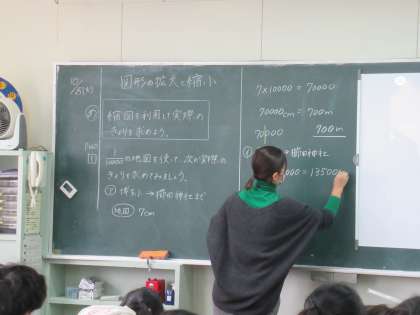 10/
28(火)
図形の拡大と縮小
め
縮図を利用して実際の
きょりを求めよう。
P.160
1
1/10000の地図を使って、次の実際の
きょりを求めてみましょう。
ア 博多小→櫛田神社まで
地図 7cm
7×10000 = 70000
70000cm = 700m
70000
700m
→櫛田神社
000 = 135000